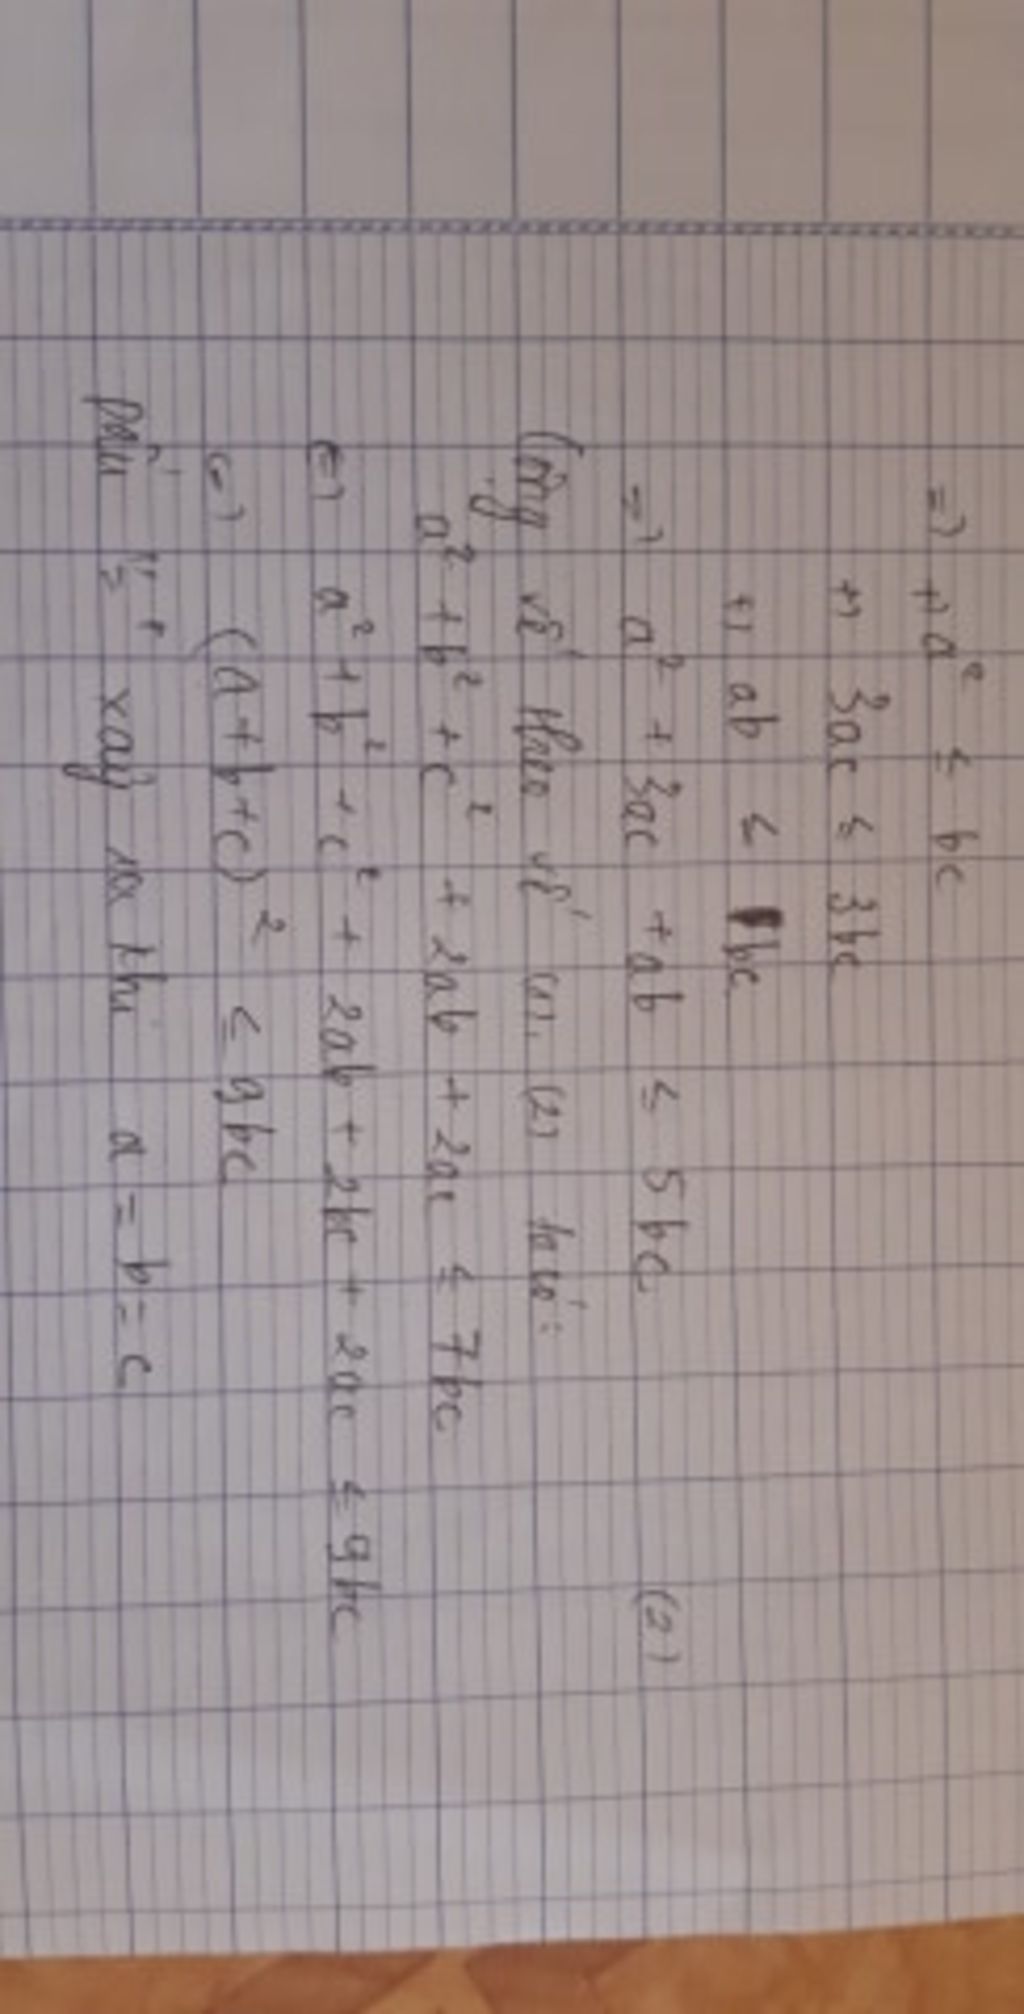 =) +) a² ≤ bc
+) 3ac ≤ 3bc
+) ab ≤ bc
=) a² + 3ac + ab ≤ 5bc (2)
Cộng vế theo vế (1), (2) ta có:
a² + b² + c² + 2ab + 2ac ≤ 7bc
(=) a² + b² + c² + 2ab + 2bc + 2ac ≤ 9bc
(=) (a+b+c)² ≤ 9bc
Dấu "=" xảy ra khi a = b = c